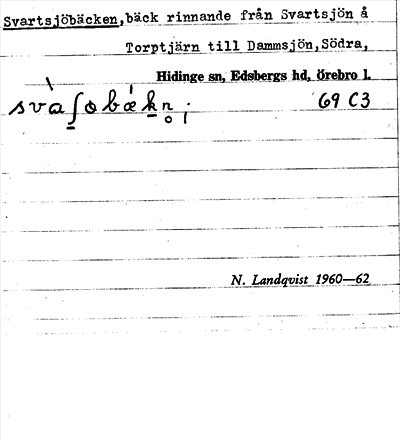 Svartsjöbäcken,bäck rinnande från Svartsjön å
Torptjärn till Dammsjön,Södra,
Hidinge sn, Edsbergs hd, Örebro l.
svaʃobækn̥; 69 C3
N. Landqvist 1960—62